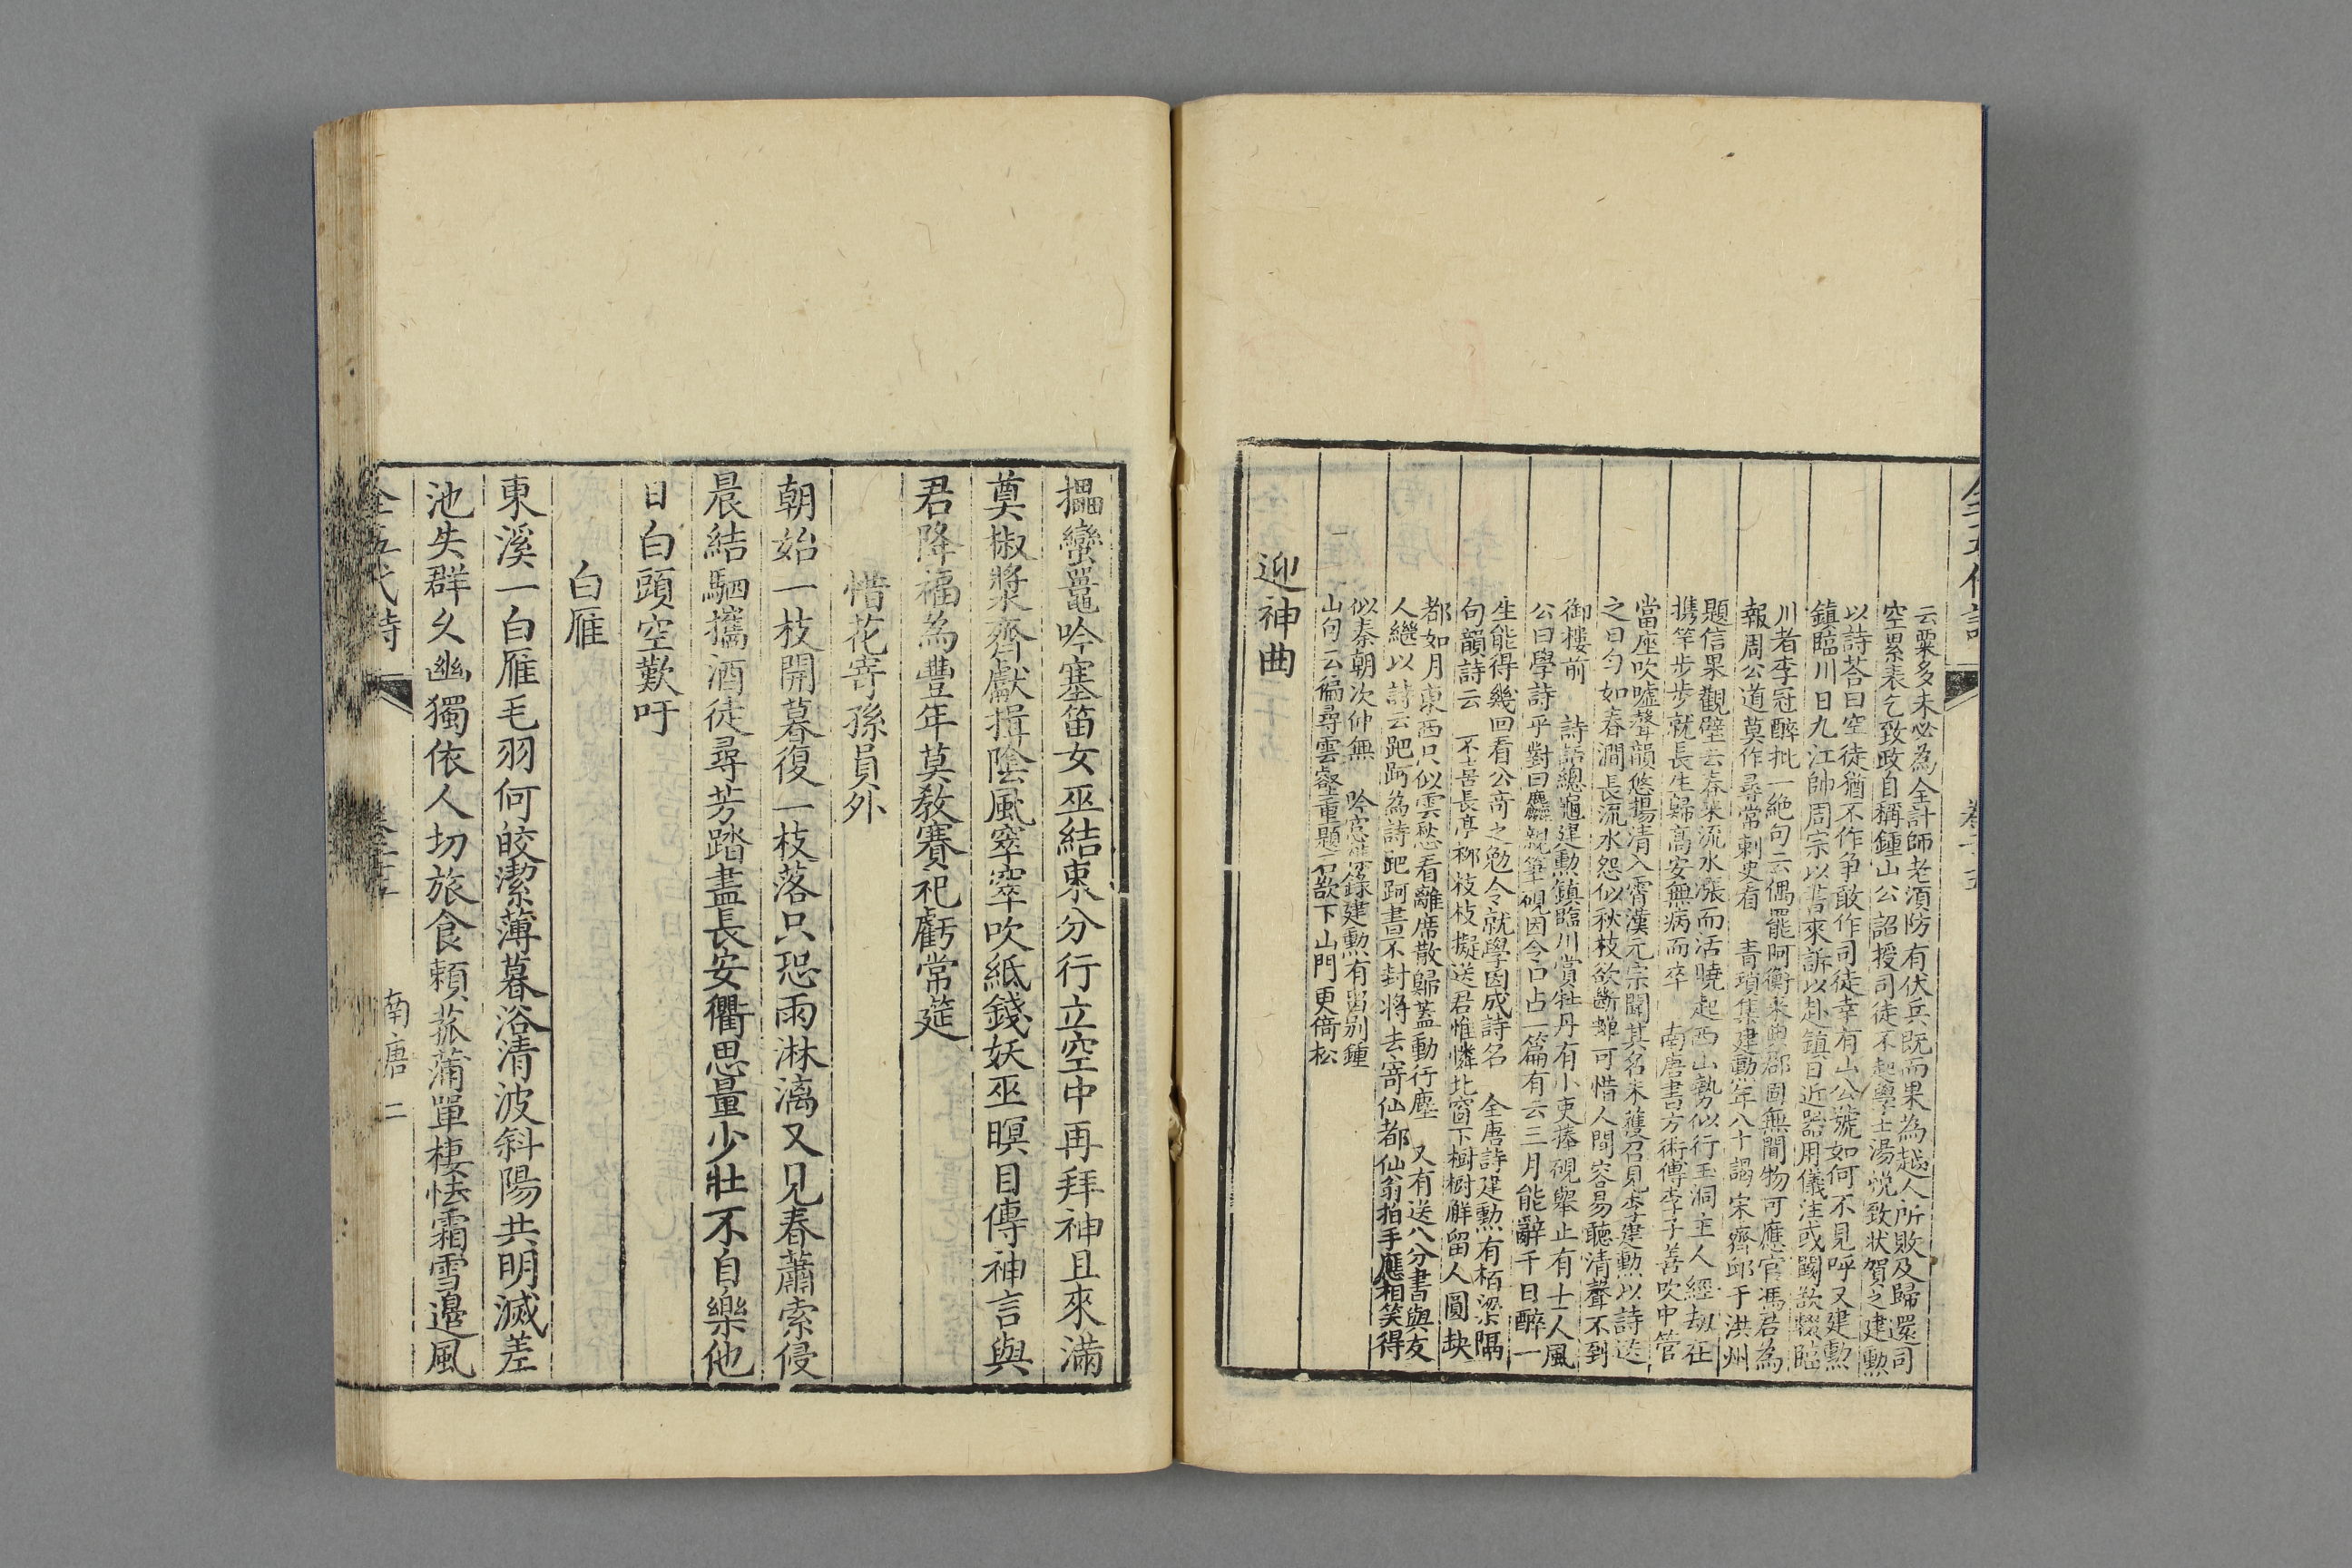 云粟多未必為全計師老須防有伏兵既而果為越人所敗及歸還司
空累表乞致政自稱鍾山公詔授司徒不起學士湯悅致狀賀之建勳
以詩荅曰空徒猶不作爭敢作司徒幸有山公號如何不見呼又建勳
鎮臨川日九江帥周宗以書來訴以赴鎮日近器用儀注或闕欲輟臨
川者李冠醉批一絕句云偶罷阿衡來典郡固無閒物可應官馮君為
報周公道莫作尋常刺史看 青瑣集建勳年八十謁宋齊邱于洪州
題信果觀壁云春來流水漲而活曉起西山勢似行玉洞主人經劫在
携竿步步就長生歸高安無病而卒 南唐書方術傳李子善吹中管
當座吹噓聲韻悠揚清入霄漢元宗聞其名未獲召見李建勳以詩送
之曰勻如春澗長流水怨似秋枝欲斷蟬可惜人間容易聽清聲不到
御樓前 詩話總龜建勳鎮臨川賞牡丹有小吏捧硯舉止有士人風
公曰學詩乎對曰麤親筆硯因令口占一篇有云三月能辭千日醉一
生能得幾回看公奇之勉令就學因成詩名 全唐詩建勳有栢梁隔
句韻詩云 不喜長亭柳枝枝擬送君惟憐北窗下樹樹解留人圓缺
都如月東西只似雲愁看離席散歸蓋動行塵 又有送八分書與友
人繼以詩云跁跒為詩跁跒書不封將去寄仙都仙翁拍手應相笑得
似秦朝次仲無 吟窓雜錄建勳有留别鍾
山句云徧尋雲壑重題石欲下山門更倚松
迎神曲
擂蠻鼉吟塞笛女巫結束分行立空中再拜神且來滿
奠椒漿齊獻揖陰風窣窣吹紙錢妖巫瞑目傳神言與
君降福為豐年莫教賽祀虧常筵
惜花寄孫員外
朝始一枝開暮復一枝落只恐雨淋漓又見春蕭索侵
晨結駟攜酒徒尋芳踏盡長安衢思量少壯不自樂他
日白頭空歎吁
白雁
東溪一白雁毛羽何皎潔薄暮浴清波斜陽共明滅差
池失群久幽獨依人切旅食賴菰蒲單棲怯霜雪邊風
全五代詩
南唐 二